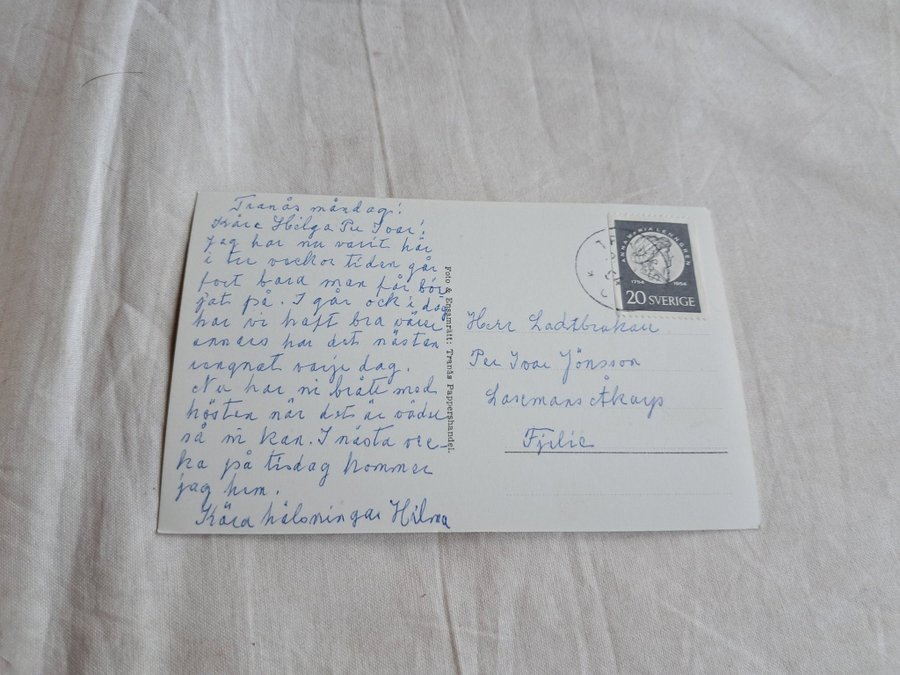 Tranås måndag!
Kära Helga Per Ivar!
Jag har nu varit här
i tre veckor tiden går
fort bara man får bör
jat på. I går och i dag
har vi haft bra väder
annars har det nästan
rengnat varje dag.
Nu har ni brått med
hösten när det är väder
så ni kan. I nästa vec-
ka på tisdag kommer
jag hem.
Kära hälsningar Hilma
Foto & Ensamrätt: Tranås Pappershandel.
ANNA MARIA LENNGREN
1754 1954
20 SVERIGE
Herr Lantbrukare
Per Ivar Jönsson
Åkarp
Fjelie